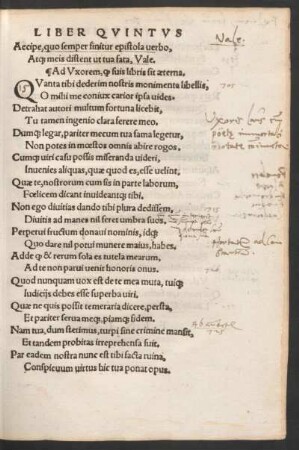 LIBER QVINTVS
Accipe, quo semper finitur epistola uerbo,
Atq; meis distent ut tua fata, Vale.
¶Ad Vxorem, q suis libris sit æterna.
QVanta tibi dederim nostris monumenta libellis,
O mihi me coniux carior ipsa uides.
Detrahat autori multum fortuna licebit,
Tu tamen ingenio clara ferere meo.
Dumq; legar, pariter mecum tua fama legetur,
Non potes in mœstos omnis abire rogos.
Cumq; uiri casu possis miseranda uideri,
Inuenies aliquas, quæ quod es, esse uelint,
Quæ te, nostrorum cum sis in parte laborum,
Fœlicem dicant inuideantq; tibi.
Non ego diuitias dando tibi plura dedissem,
Diuitis ad manes nil feret umbra suos.
Perpetui fructum donaui nominis, idq;
Quo dare nil potui munere maius, habes.
Adde q & rerum sola es tutela mearum,
Ad te non parui uenit honoris onus.
Quod nunquam uox est de te mea muta, tuiq;
Iudicijs debes esse superba uiri.
Quæ ne quis possit temeraria dicere, persta,
Et pariter serua meq;, piamq; fidem.
Nam tua, dum stetimus, turpi sine crimine mansit,
Et tandem probitas irreprehensa fuit.
Par eadem nostra nunc est tibi facta ruina,
Conspicuum uirtus hic tua ponat opus.
Vale.
Uxoris